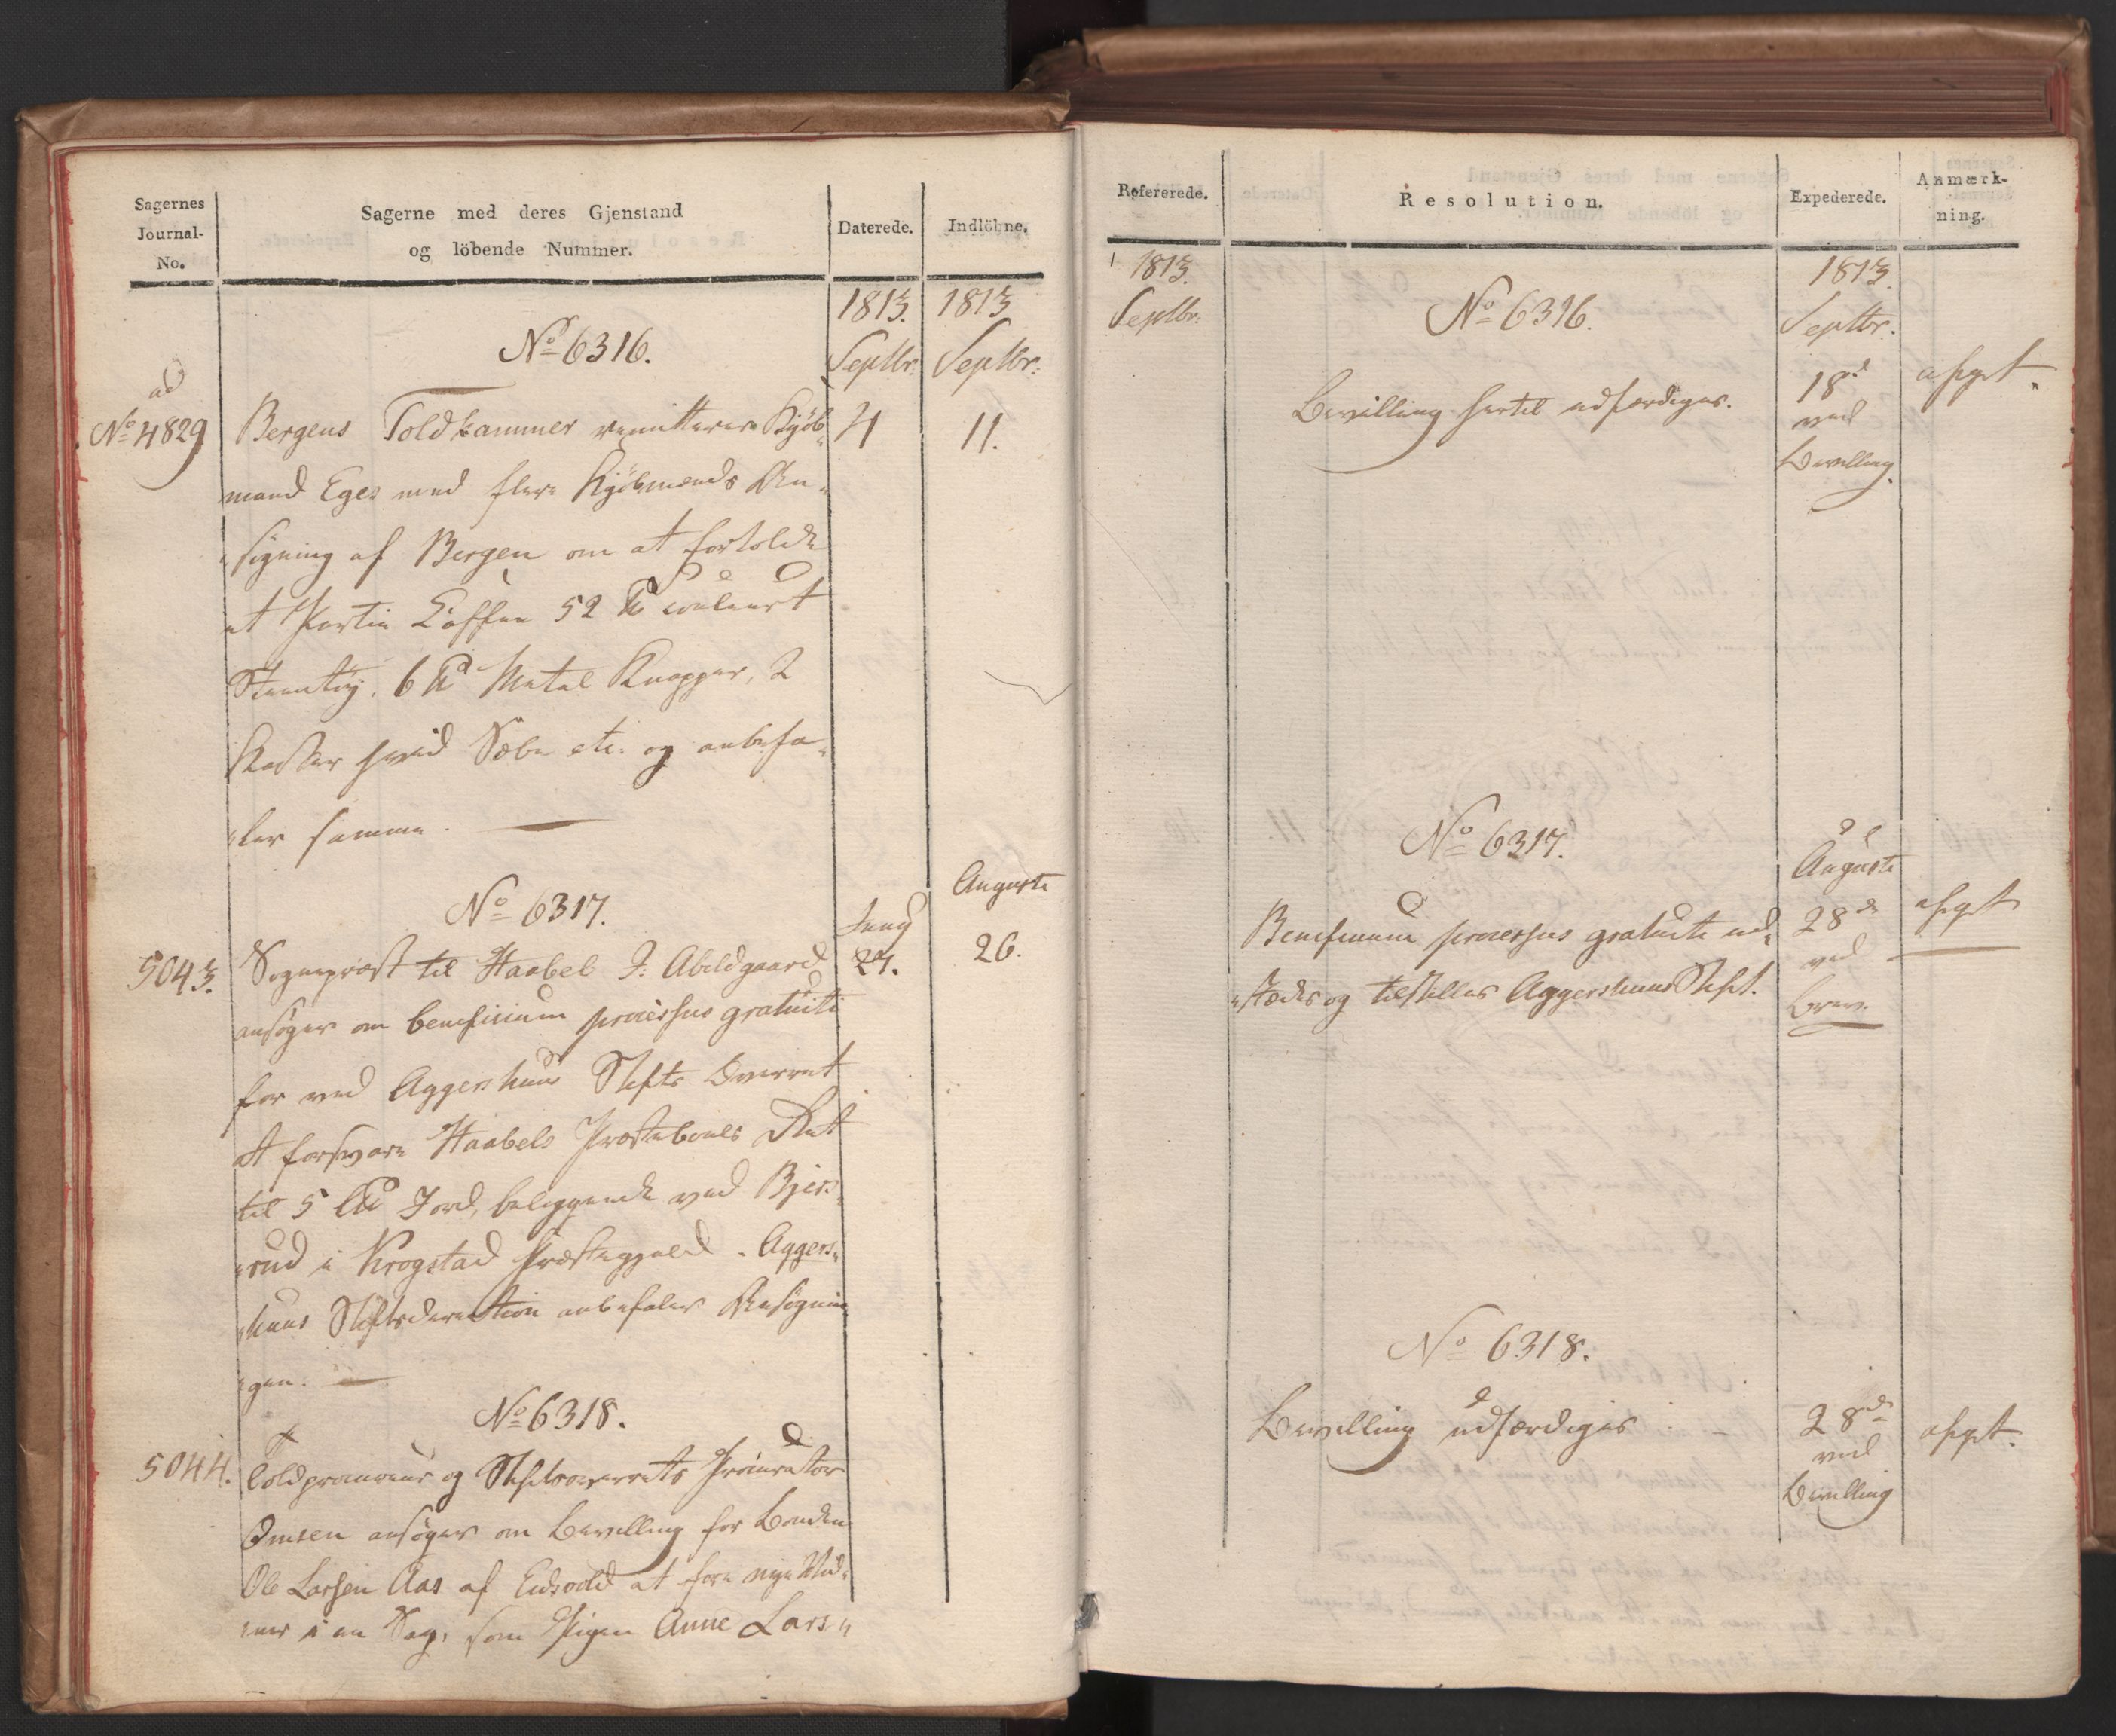 Sagernes
Journal-
No.
Sagerne med deres Gjenstand
og löbende Nummer.
Daterede.
Indlöbne.
1813.
Septbr:
1813
Septbr:
No 6316.
ad
No 4829
Bergens Toldkammer remitterer Kjöb-
4
11.
mand Eges med flere Kjöbmænds An-
søgning af Bergen om at fortolde
et Partie Caffee 52 ℔
Steentöy, 6 ℔ Metal Knapper, 2
Kasser hvid Sæbe etc. og anbefa-
ler samme.
No 6317.
Juny
Auguste
5043.
Sognepræst til Haabel J: Abildgaard
27.
26.
ansøger om beneficium processus gratuiti
for ved Aggershuus Stifts Overret
at forsvare Haabels Præstebols Ret
til 5 L℔ Jord, beliggende ved Bjer-
rud i Krogstad Præstegjeld. Aggers-
huus Stiftsdirection anbefaler Ansögnin-
gen.
No 6318.
5044.
Toldprocureur og Stiftsoverrets Procurator
Omsen ansøger om Bevilling for Bonden
Ole Larsen Aas af Eidsvold at føre nye Vid-
ner i en Sag, som Pigen Anne Lars-
Refererede.
Resolution.
Expederede.
Anmærk-
ning.
1813.
Septbr:
1813.
Septbr.
No 6316.
Bevilling hertil udfærdiges.
18d
ved
Bevilling.
afgt.
No 6317.
Auguste
Beneficium processus gratuiti ud-
28de
afgt
stædes og tilstilles Aggershuus Stift.
ved
Brev.
No 6318.
Bevilling udfærdiges
28de
ved
Bevilling
afgt.